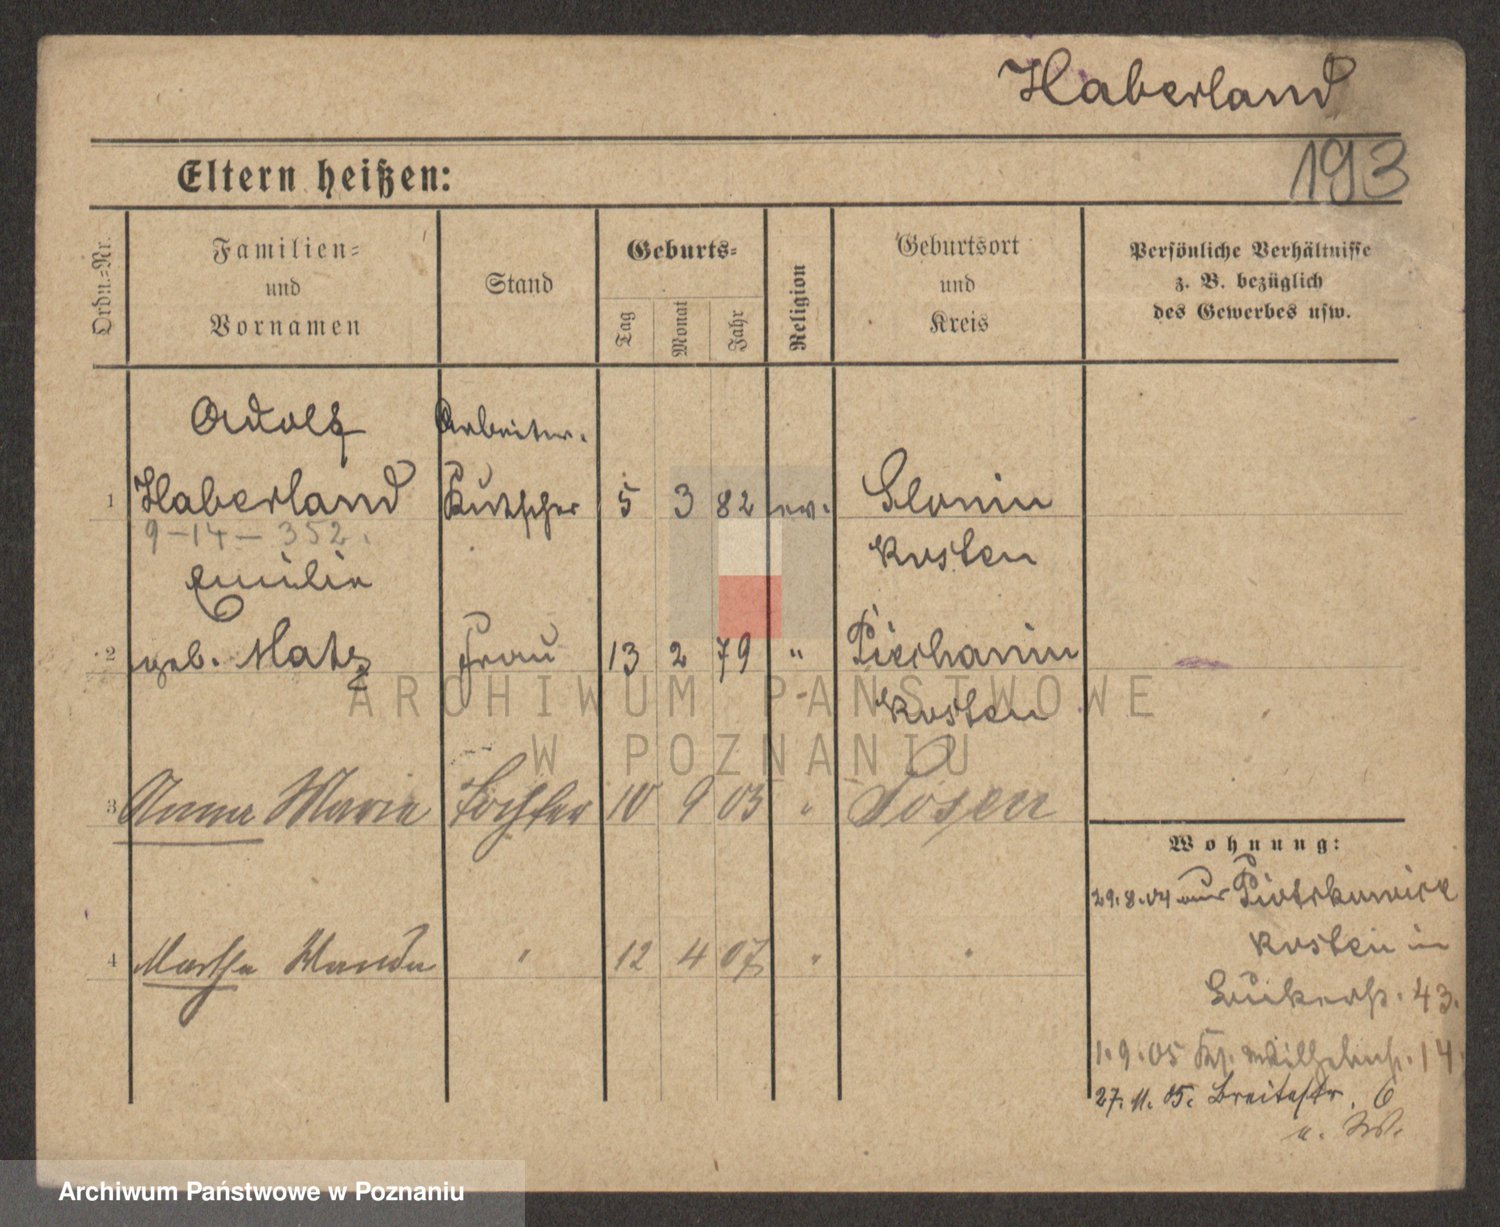 Haberland
193
Eltern heißen:
Ordn.-Nr.
Familien-
und
Vornamen
Stand
Geburts-
Tag
Monat
Jahr
Religion
Geburtsort
und
Kreis
Persönliche Verhältnisse
z. B. bezüglich
des Gewerbes usw.
Adolf
Arbeiter.
1 Haberland Kutscher 5 3 82 ev. Slonin
9-14-352.
Kosten
Emilie
2 geb. Matz Frau 13 2 79 " Piechanin
Kosten
ARCHIWUM PAŃSTWOWE
W POZNANIU
3 Anna Marie Tochter 10 9 03 " Posen
4 Martha Wanda " 12 4 07 " "
Wohnung:
29.8.04 aus Piotrkowice
Kosten in
43.
1.9.05 Kr. Wilhelmstr. 14
27.11.05. Breitestr. 6
Archiwum Państwowe w Poznaniu